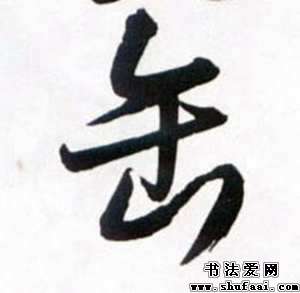 缶
书法爱网
www.shufaai.com